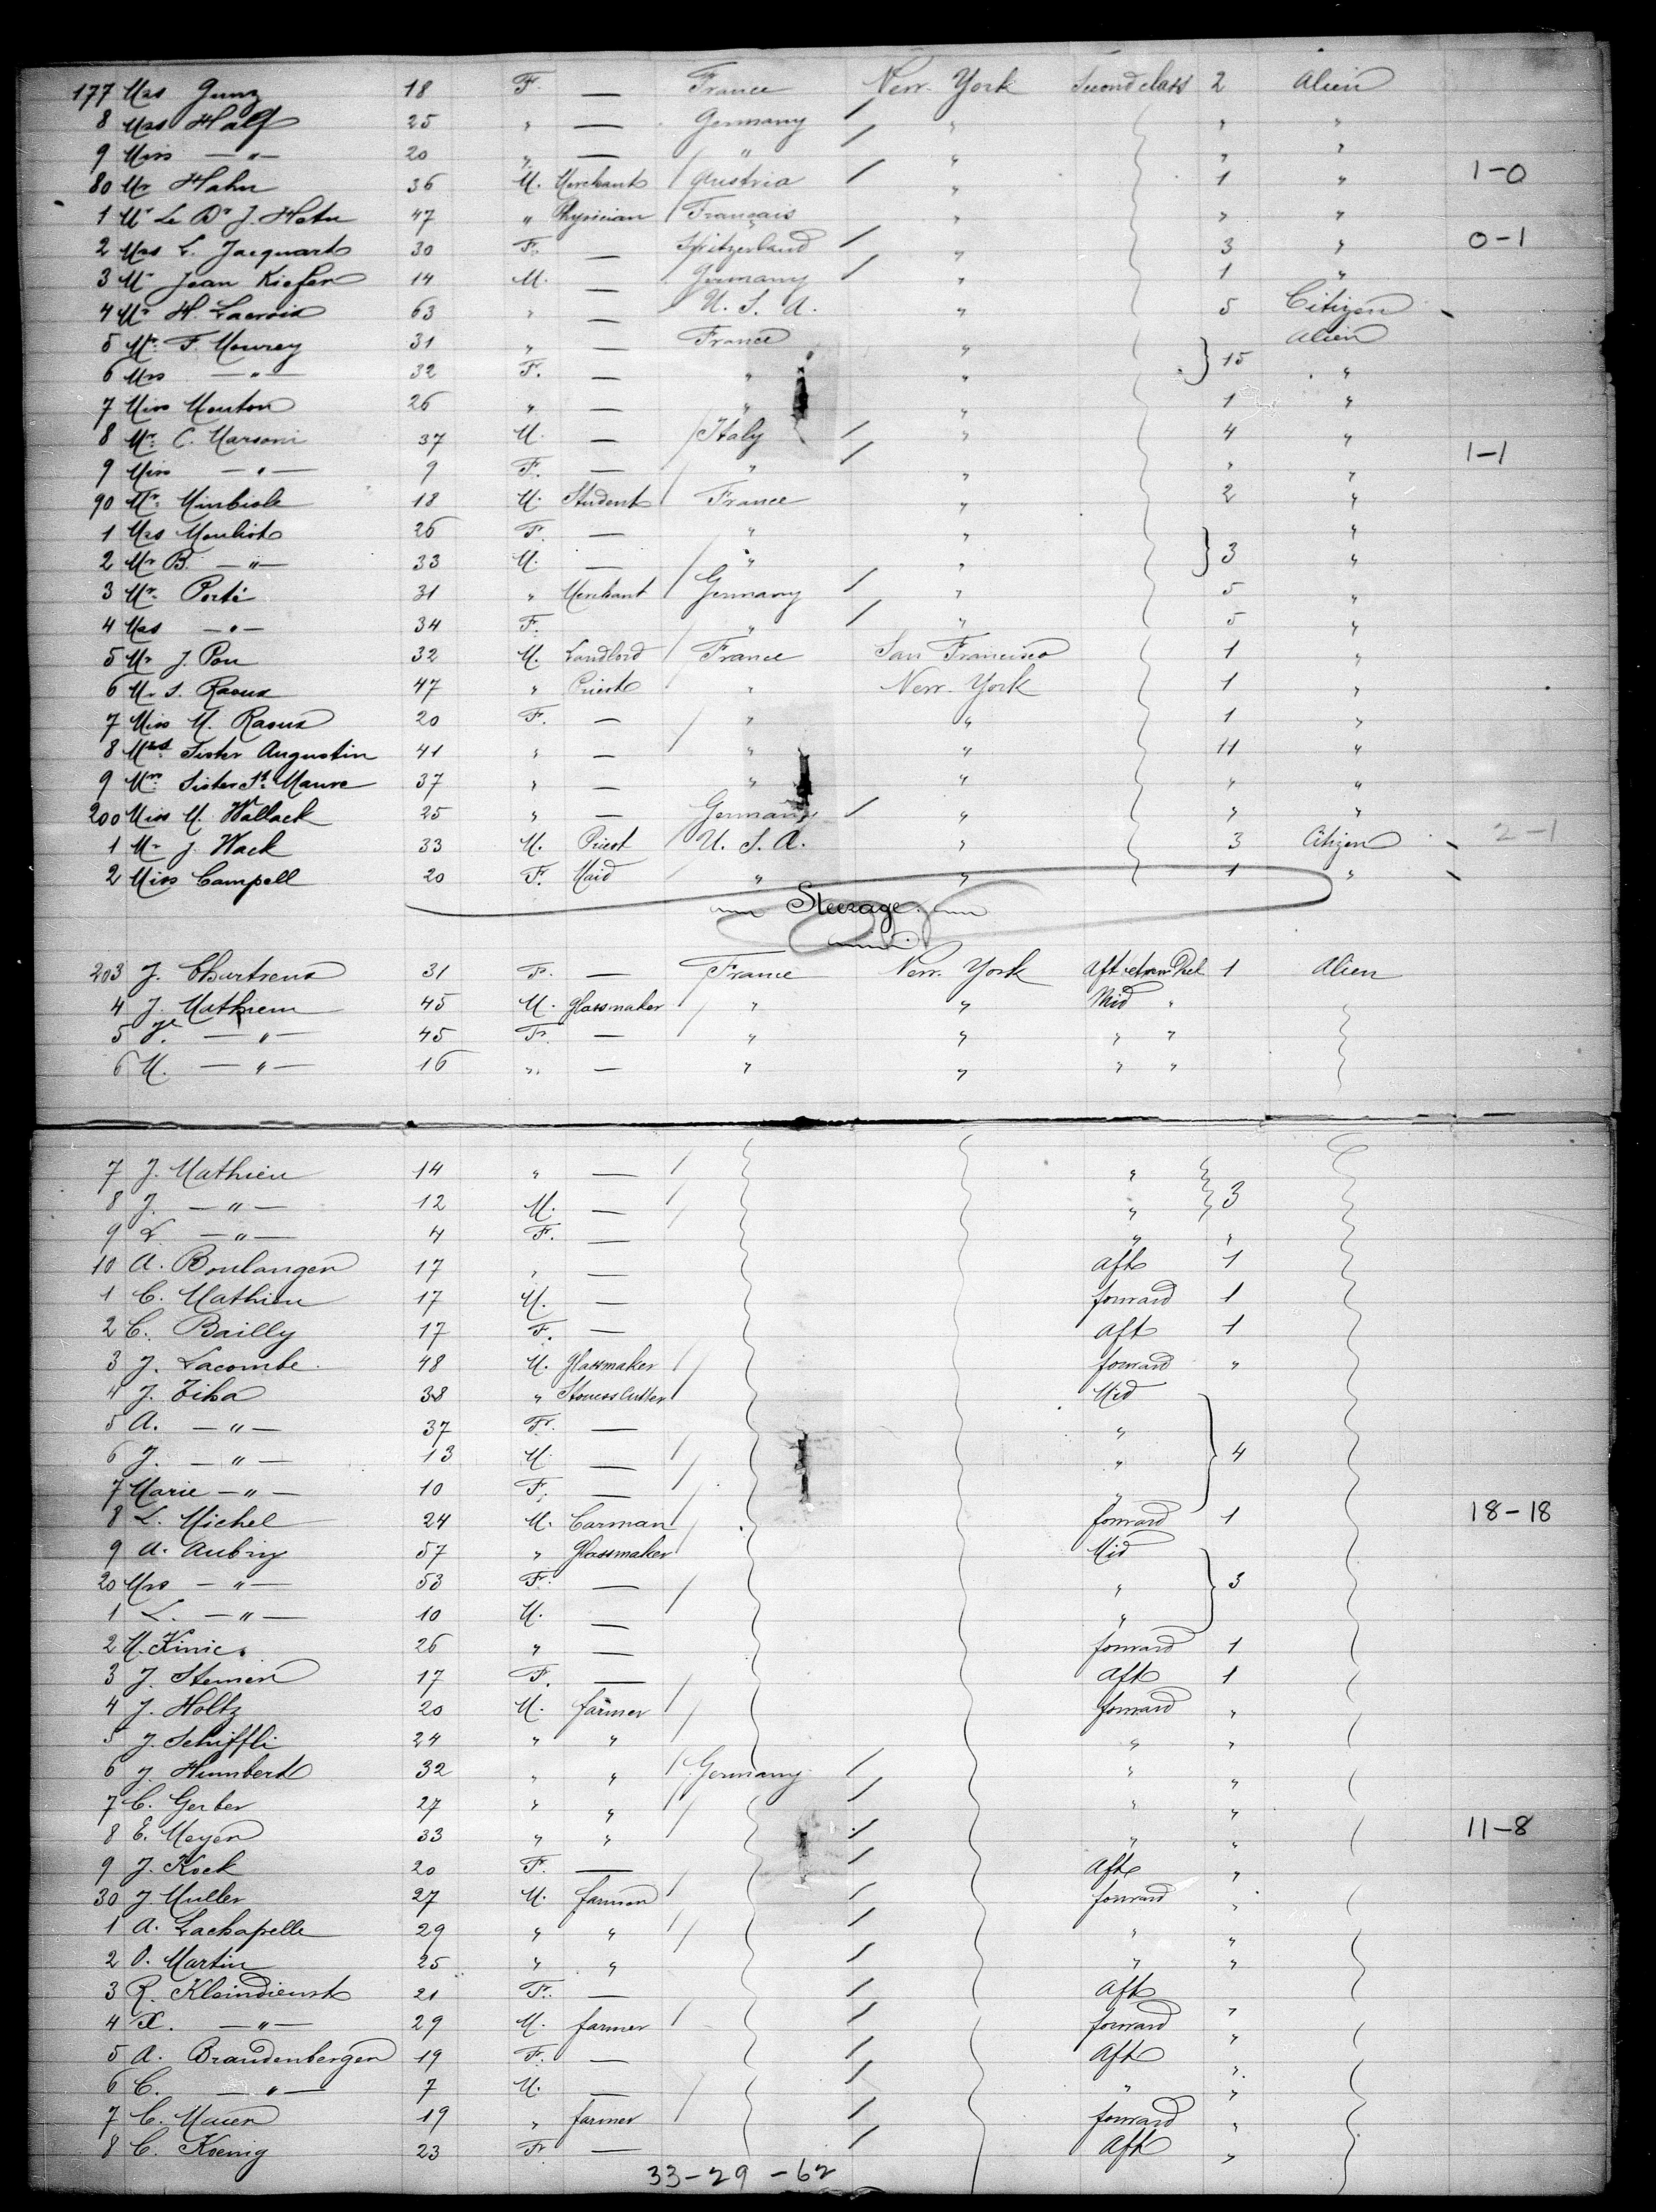 177 Mrs Gunz 18 F. — France New York Second class 2 Alien
8 Mrs Half 25 " — Germany " " "
9 Miss —"— 20 " — " " " "
80 Mr Hahn 36 M. Merchant Austria " 1 " 1-0
1 Mr Le Dr J. Hetu 47 " Physician Français " " "
2 Mrs L. Jacquart 30 F. — Switzerland " 3 " 0-1
3 Mr Jean Kiefer 14 M. — Germany " 1 "
4 Mr H. Lacroix 63 " — U.S.A. " 5 Citizen
5 Mr F. Mourey 31 " — France " 15 Alien
6 Mrs —"— 32 F. — " " "
7 Miss Mouton 26 " — " " 1 "
8 Mr C. Marsoni 37 M. — Italy " 4 "
9 Miss —"— 9 F. — " " " " 1-1
90 Mr Minbiole 18 M. Student France " 2 "
1 Mrs Mouliot 26 F. — " " "
2 Mr B. —"— 33 M. — " " 3 "
3 Mr Porté 31 " Merchant Germany " 5 "
4 Mrs —"— 34 F. " " 5 "
5 Mr J. Pou 32 M. Landlord France San Francisco 1 "
6 Mr S. Raoux 47 " Priest " New York 1 "
7 Miss M. Raoux 20 F. — " " 1 "
8 Mrs Sister Augustin 41 " — " " 11 "
9 Mrs Sister St. Maure 37 " — " " " "
200 Miss M. Wallack 25 " — Germany " " "
1 Mr J. Wack 33 M. Priest U.S.A. " 3 Citizen 2-1
2 Miss Campell 20 F. Maid " " 1 "
Steerage.
203 J. Chartreux 31 F. — France New York Aft 1 Alien
4 J. Mathieu 45 M. glassmaker " " Mid "
5 J. —"— 45 F. — " " " "
6 M. —"— 16 " — " " " "
7 J. Mathieu 14 " — "
8 J. —"— 12 M. — " 3
9 L. —"— 4 F. — " "
10 A. Boulanger 17 " — Aft 1
1 C. Mathieu 17 M. — forward 1
2 C. Bailly 17 F. — Aft 1
3 J. Lacombe 48 M. glassmaker forward "
4 J. Tiha 38 " Stoness Cutter Mid
5 A. —"— 37 F. — "
6 J. —"— 13 M. — " 4
7 Marie —"— 10 F. — "
8 L. Michel 24 M. Carman forward 1 18-18
9 A. Aubry 57 " glassmaker Mid
20 Mrs —"— 53 F. — " 3
1 L. —"— 10 M. — "
2 M. Kinic 26 " — forward 1
3 J. Stemer 17 F. — Aft 1
4 J. Holtz 20 M. farmer forward "
5 J. Schiffli 24 " " " "
6 J. Humbert 32 " " Germany " "
7 C. Gerber 27 " " " "
8 E. Meyer 33 " " " " 11-8
9 J. Kock 20 F. — Aft "
30 J. Muller 27 M. farmer forward "
1 A. Lachapelle 29 " " " "
2 O. Martin 25 " " " "
3 R. Kleindienst 21 F. — Aft
4 X. —"— 29 M. farmer forward "
5 A. Brandenberger 19 F. — Aft "
6 C. —"— 7 M. — " "
7 C. Maier 19 " farmer forward "
8 C. Koenig 23 F. — Aft "
33-29-62